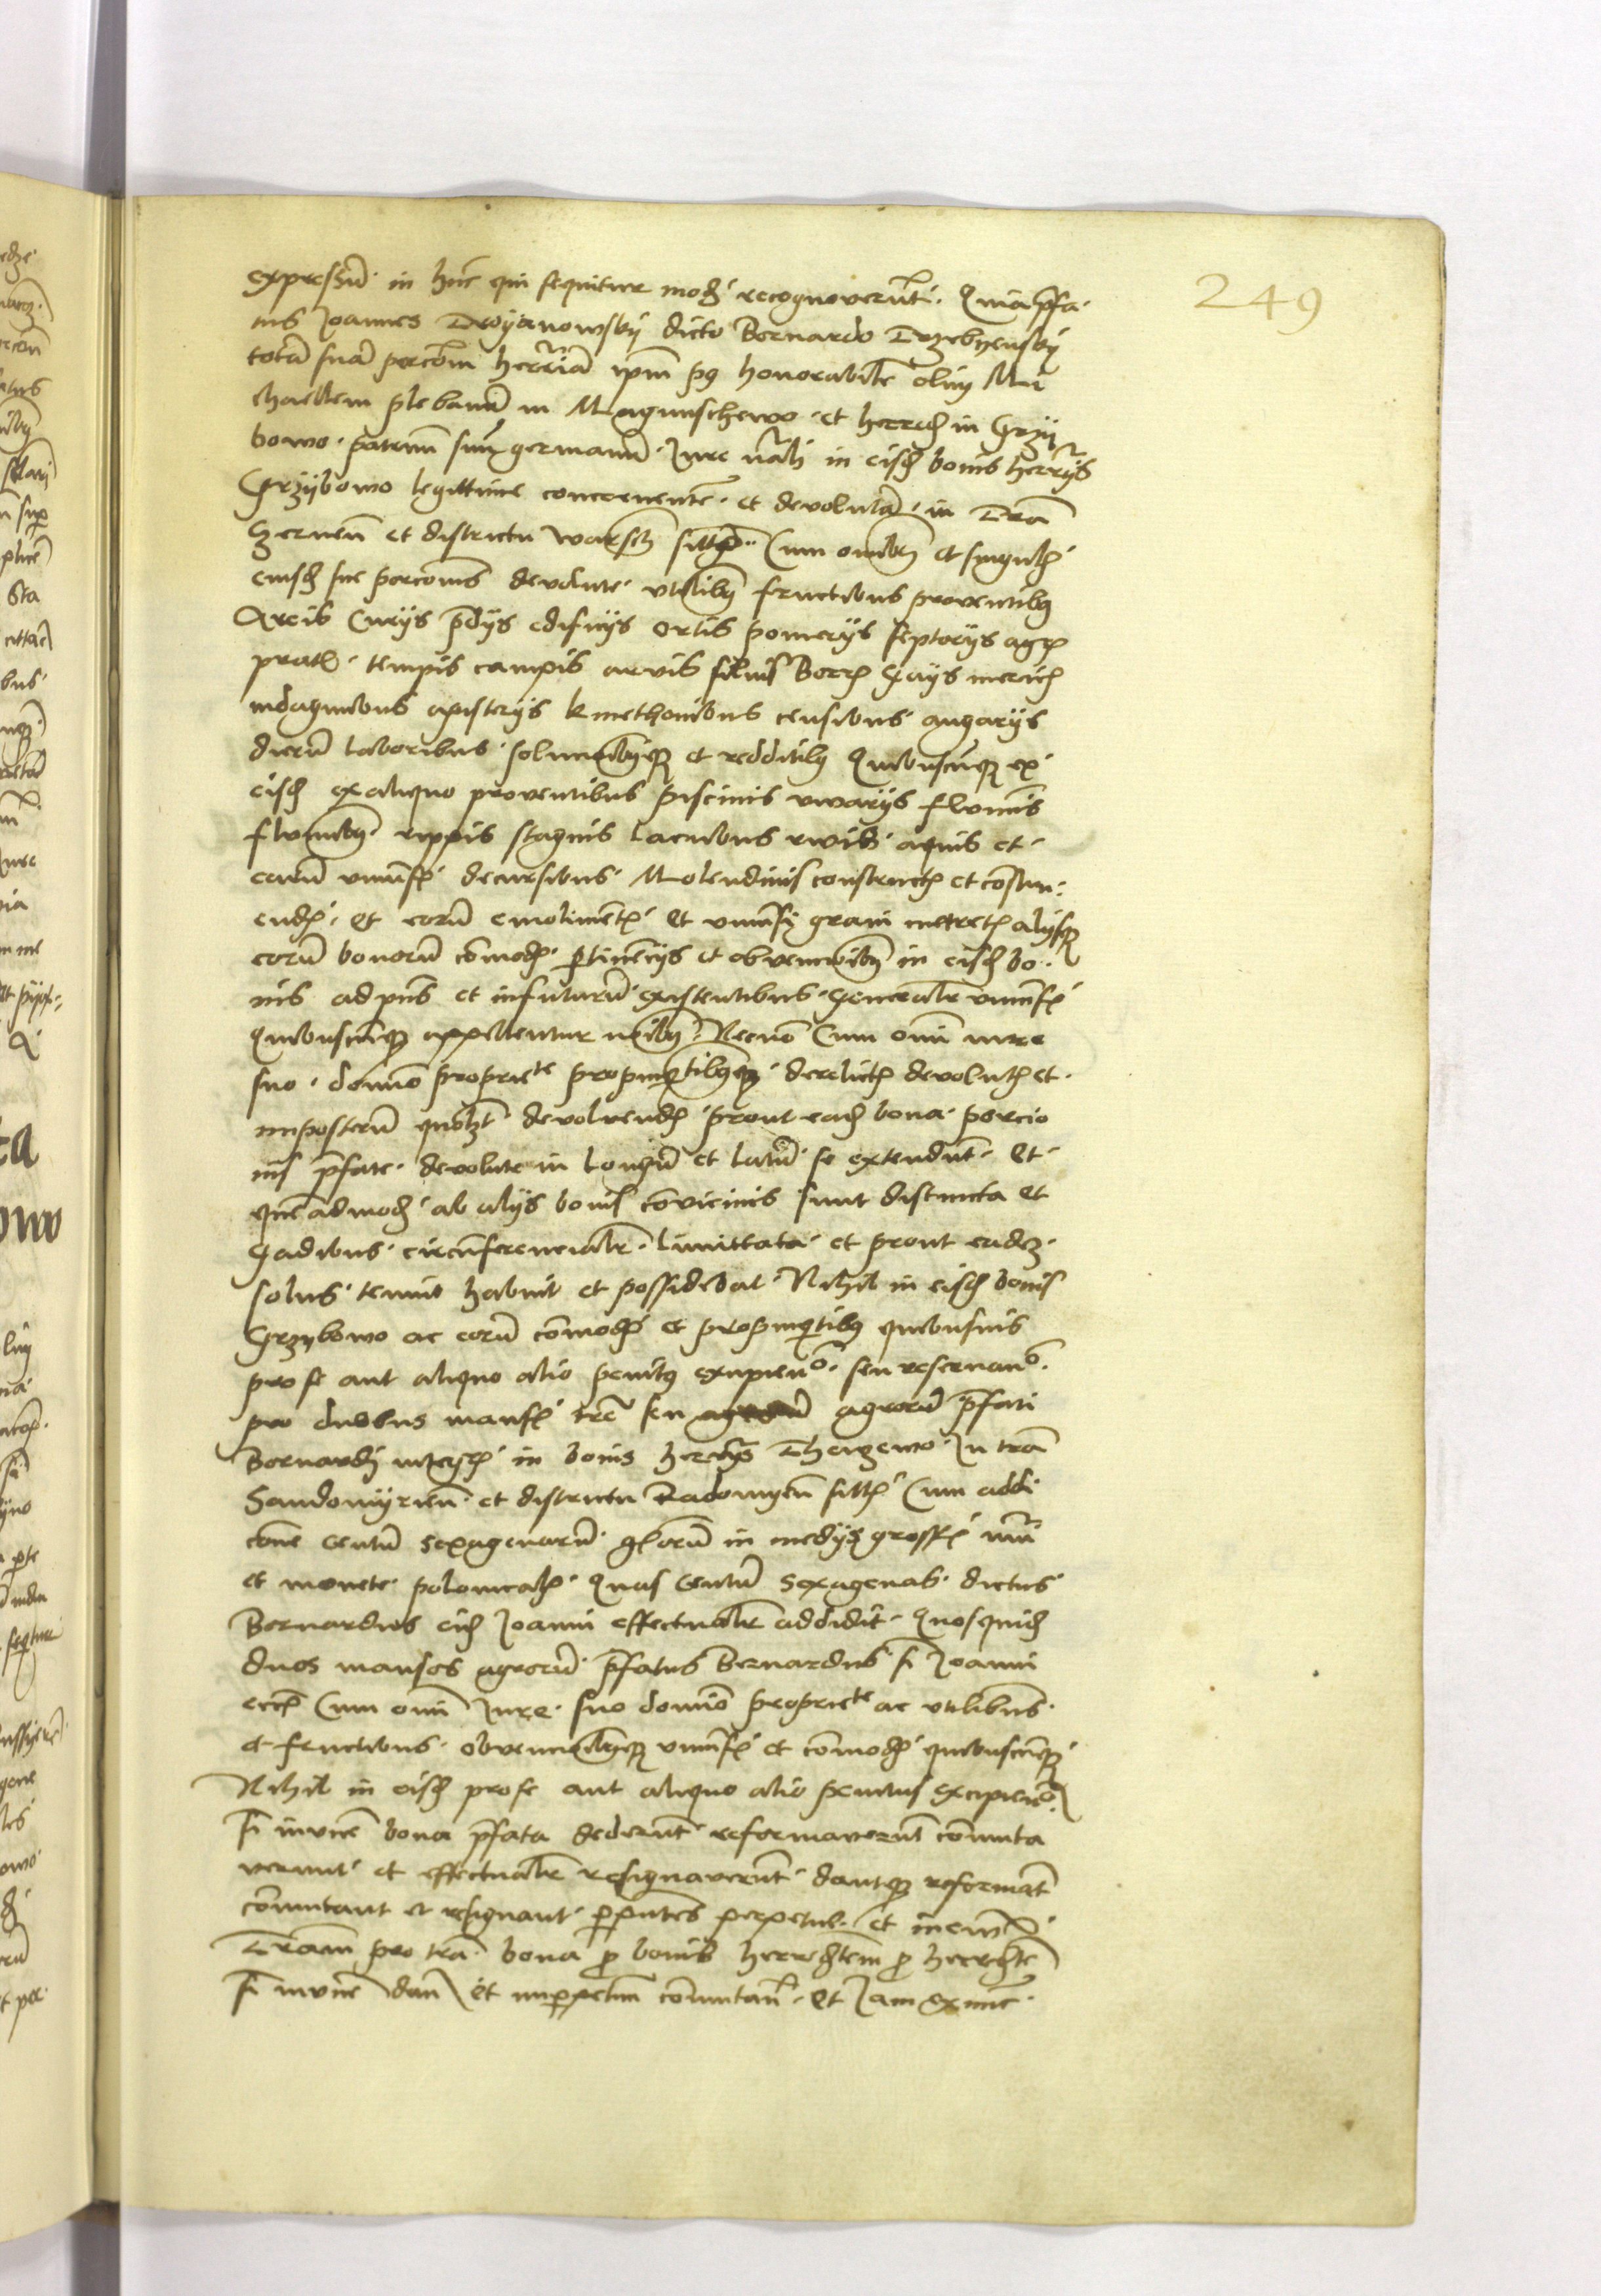 249
expressum in hunc qui sequitur modum recognoverunt. Quia prefa
tus Joannes Droyanowsky dicto Bernardo Trzebyensky
totam suam porcionem herrariam ipsum post honorabilem olim Mi
chaellem plebanum in Magnuschewo et herredem in Grzy
bowo patruum suum germanum Jure nrali in eisdem bonis herrariis
Grzybowo legittime concernentem et devolutam in Terra
Czernen et districtu Warsch sittam Cum omnibus et singulis
eiusdem sue porcionis devolute utilibus fructibus proventibus
Areis Curiis prediis edificiis ortis pomeriis septoriis agris
pratis campis arvis silvis Borris Gays mericis
indaginibus apisteriis kmethonibus censibus angariis
dierum laboribus solucionibusque et redditibus Quibuscunque ex
eisdem ex aliquo proventibus piscinis vivariis
fluminibus rippis stagnis lacubus rivis aquis et
earum universis decursibus Molendinis constructis et constru
endis et eorum emolimentis Et universis grani metretis aliisque
eorum bonorum commodis pertinenciis et obvencionibus in eisdem bo
nis ad presens et in futurum existentibus generaliter universis
Quibuscunque appellentur nominibus Necnon Cum omni iure
suo dominio proprietate propinquitatibusque derelictis devolutis et
imposterum quolibet devolvendis prout eadem bona porcio
nis prefate devolute in longum et latum se extendunt Et
quemadmodum ab aliis bonis convicinis sunt distincta et
Gadibus circumferencialiter limittata et prout eadem
solus tenuit habuit et possidebat Nihil in eisdem bonis
Grzybowo ac eorum commodis et propinquitatibus quibusvis
pro se aut aliquo alio penitus excipiendo seu reservando
pro duobus mansis terre seu agrorum prefati
Bernardi integris in bonis herrariis In terra
Sandomyrien et districtu Radomyen sittis Cum addi
cione Centum sexagenarum grossorum in mediis grossis numeri
et monete polonicalis Quas Centum Sexagenas dictus
Bernardus eidem Joanni effectualiter addidit Quosquidem
duos mansos agrorum prefatus Bernardus Joanni
Cum omni Jure suo dominio proprietate ac utilibus
et fructibus obvencionibusque universis et commodis quibuscunque
Nihil in eisdem pro se aut aliquo alio penitus excipiendo
Sibi invicem bona prefata dederunt reformaverunt commuta
verunt et effectualiter resignaverunt dantque reformant
commutant et resignant per presentes perpetue et in evum
Terram pro terra bona pro bonis herreditatem pro herreditate
Sibi invicem dando et imperpetuum commutando Et Jam ex nunc